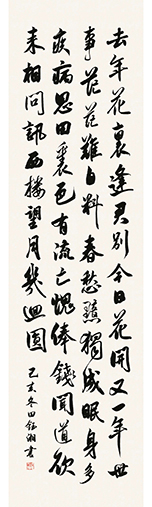 去年花裏逢君别今日花開又一年世
事茫茫難自料春愁黯々獨成眠身多
疾病思田裏邑有流亡愧俸錢聞道欲
来相問訊西樓望月幾迴圓
己亥冬田書